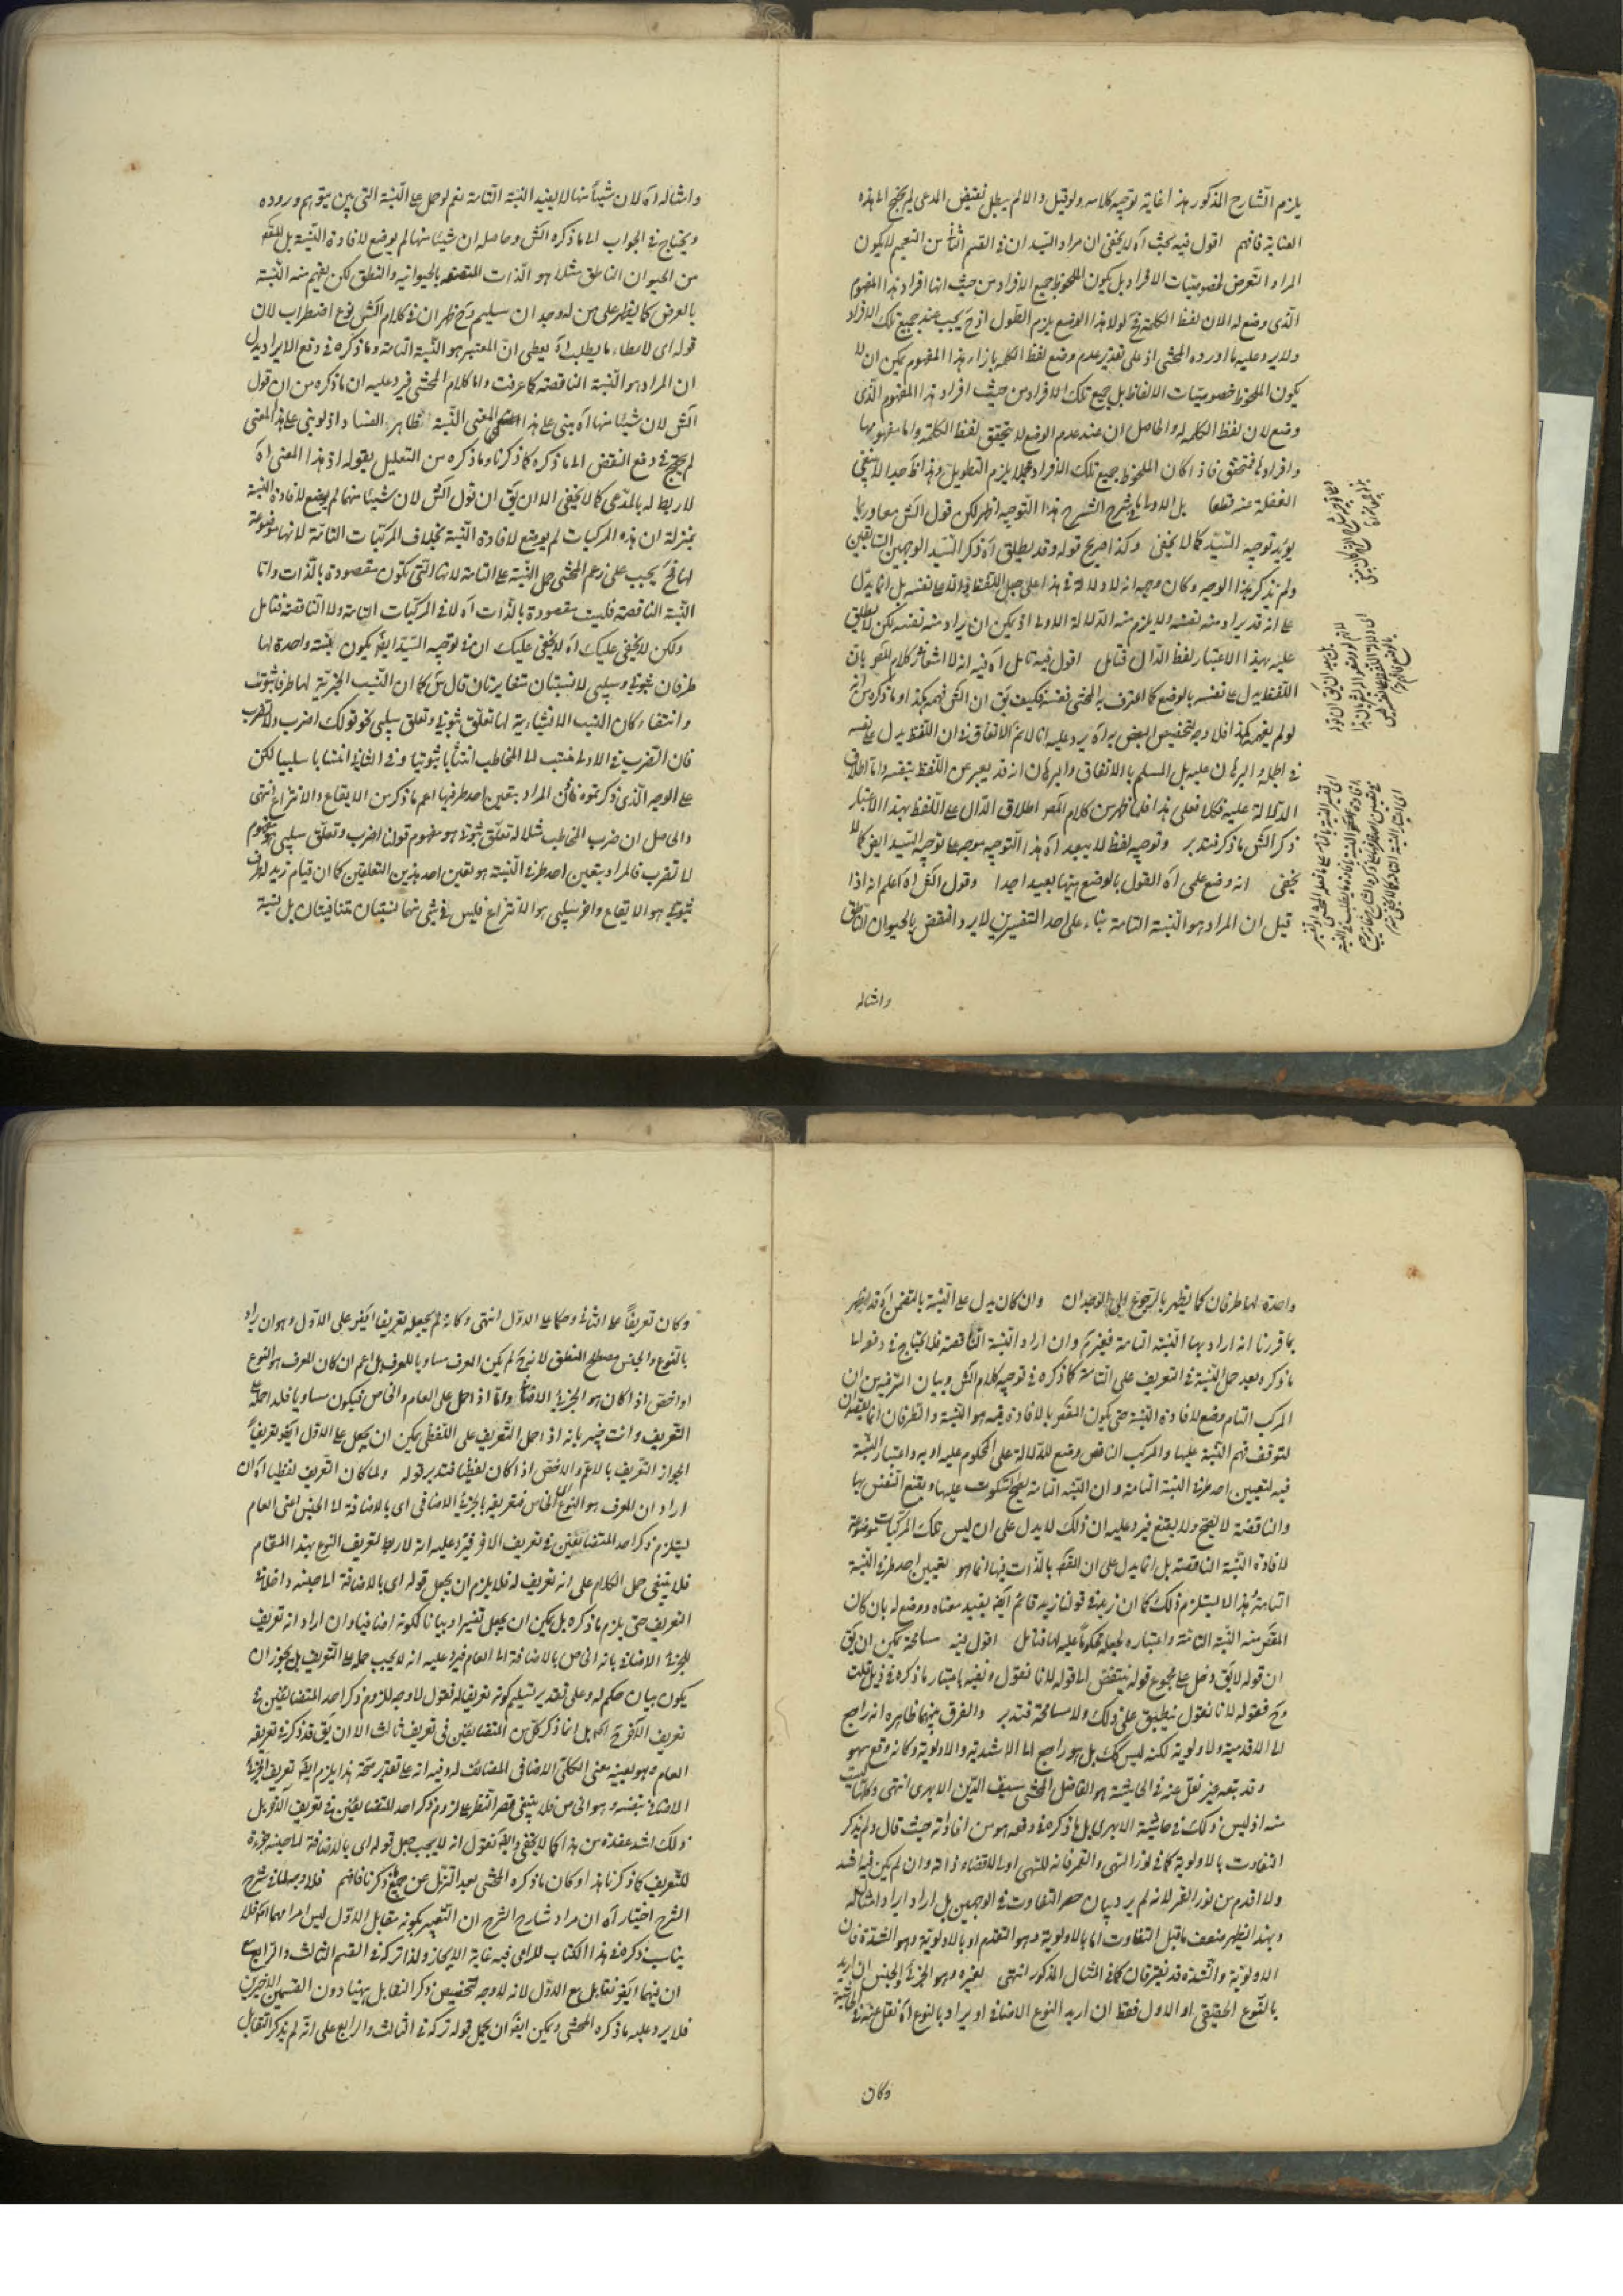 يلزم الشارح المذكور هذا غاية توجيه كلامه ولو قيل والا لم يبطل نقيض المدعى لم يحتج الى هذه
العناية فافهم اقول فيه بحث اه لا يخفى ان مراد السيد ان في القسم الثاني من التعميم لا يكون
المراد التعرض لخصوصيات الافراد بل يكون الملحوظ جميع الافراد من حيث انها افراد هذا المفهوم
الذي وضع له الان لفظ الكلمة فح لولا هذا الوضع يلزم الطول اذ ح يجب عند جميع تلك الافراد
ولا يرد عليه ما اورده المحشى اذ على تقدير عدم وضع لفظ الكلمة بازاء هذا المفهوم يمكن ان لا
يكون الملحوظ خصوصيات الالفاظ بل جميع تلك الافراد من حيث افراد هذا المفهوم الذي
وضع لان لفظ الكلمة له والحاصل ان عند عدم الوضع لا يتحقق لفظ الكلمة واما مفهومها
وافراده فمتحقق فاذا كان الملحوظ جميع تلك الافراد مجملا يلزم التطويل وهذا جدا لا ينبغي
الغفلة عنه قطعا بل الاولى ما في شرح الشرح هذا التوجيه اظهر لكن قول الش معاور بما
يؤيد توجيه السيد كما لا يخفى وكذا صريح قوله وقد يطلق اه ذكر السيد الوجهين السابقين
ولم يذكر هذا الوجه وكان وجهه انه لا دلالة في هذا على جعل اللفظ دالا على نفسه بل انما يدل
على انه قد يراد منه نفسه ولا يلزم منه الدلالة الاولى اذ يمكن ان يراد منه نفسه لكن لا يطلق
عليه بهذا الاعتبار لفظ الدال فتامل اقول فيه تامل اه فيه انه لا اشعار في كلام المص بان
اللفظ يدل على نفسه بالوضع كما اعترف به المحشى نفسه فكيف يق ان الش فهمه هكذا وما ذكره من انه
لو لم يفهمه هكذا فلا وجه لتخصيص البعض به اه يرد عليه انا لا نم الاتفاق في ان اللفظ يدل على نفسه
في الجملة والبرهان عليه بل المسلم بالاتفاق والبرهان انه قد يعبر عن اللفظ بنفسه واما اطلاق
الدلالة عليه فكلا فعلى هذا فلما ظهر من كلام المص اطلاق الدال على اللفظ بهذا الاعتبار
ذكر الش ما ذكر فتدبر وتوجيه لفظ لا يبعد اه هذا التوجيه موجه على توجيه السيد ايض كما لا
يخفى انه وضع على اه القول بالوضع بعيد جدا وقول الش اه اعلم انه اذا
قيل ان المراد هو النسبة التامة بناء على احد التفسيرين لا يرد النقض بالحيوان الناطق
وامثاله
وامثاله اه لان شيئا منها لا يفيد النسبة التامة نعم لو حمل على النسبة التي بين يتوهم وروده
ويحتاج في الجواب الى ما ذكره الش وحاصله ان شيئا منها لم يوضع لافادة النسبة بل المقص
من الحيوان الناطق مثلا هو الذات المتصفة بالحيوانية والنطق لكن يفهم منه النسبة
بالعرض كما يظهر على من له وجدان سليم وح ظهر ان في كلام الش نوع اضطراب لان
قوله اى لاعطاء ما يطلب اه يعطى ان المعتبر هو النسبة التامة وما ذكره في دفع الايراد يدل
ان المراد هو النسبة الناقصة كما عرفت واما كلام المحشى فيرد عليه ان ما ذكره من ان قول
الش لان شيئا منها اه يبنى على هذا المعنى النسبة ظاهر الفساد اذ لو بنى على هذا المعنى
لم يحتج في دفع النقض الى ما ذكره كما ذكرنا وما ذكره من التعليل بقوله اذ هذا المعنى اه
لا ربط له بالمدعى كما لا يخفى الا ان يق ان قول الش لان شيئا منها لم يوضع لافادة النسبة
بمنزلة ان هذه المركبات لم يوضع لافادة النسبة بخلاف المركبات التامة لانها موضوعة
لها فح يجب على زعم المحشى حمل النسبة على التامة لانها التي يكون مقصودة بالذات واما
النسبة الناقصة فليست مقصودة بالذات اه لا في المركبات التامة ولا الناقصة فتامل
ولكن لا يخفى عليك اه لا يخفى عليك ان في توجيه السيد ايض يكون نسبة واحدة لها
طرفان ثبوتى وسلبى لا نسبتان متغايرتان قال س كما ان النسب الخبرية لها طرفا ثبوت
وانتفاء وكان النسب الانشائية لها تعلق ثبوتى وتعلق سلبى نحو قولك اضرب ولا تضرب
فان الضرب في الاول منتسب الى المخاطب انتسابا ثبوتيا وفي الثانى انتسابا سلبيا لكن
على الوجه الذي ذكرتموه فان المراد بتعين احد طرفيها اعم ما ذكر من الايقاع والانتزاع انتهى
والحاصل ان ضرب المخاطب مثلا له تعلق ثبوتى هو مفهوم قولنا اضرب وتعلق سلبى هو مفهوم
لا تضرب فالمراد بتعين احد طرفي النسبة هو تعين احد هذين التعلقين كما ان قيام زيد له طرف
ثبوتى هو الايقاع واخر سلبى هو الانتزاع فليس في شى منهما نسبتان متنافيتان بل نسبة
واحدة لها طرفان كما يظهر بالرجوع الى الوجدان وان كان يدل على النسبة بالتضمن اه قد ظهر
بما قررنا انه اراد بها النسبة التامة فغير تم وان اراد النسبة الناقصة فلا يحتاج في دفع الى ما
ما ذكره بعد حمل النسبة في التعريف على التامة كما ذكره في توجيه كلام الش وبيان الترفيه من ان
المركب التام وضع لافادة النسبة حتى يكون المقص بالافادة فيه هو النسبة والطرفان انما يقصدان
لتوقف فهم النسبة عليها والمركب الناقص وضع للدلالة على المحكوم عليه او به واعتبار النسبة
فيه لتعيين احد طرفي النسبة التامة وان النسبة التامة يصح السكوت عليها ويقنع النفس بها
والناقصة لا يصح ولا يقنع فيرد عليه ان ذلك لا يدل على ان ليس تلك المركبات موضوعة
لافادة النسبة الناقصة بل انما يدل على ان المقص بالذات فيها انما هو تعيين احد طرفي النسبة
التامة وهذا لا يستلزم ذلك كما ان زيد في قولنا زيد قائم ايض يفيد معناه ووضع له بان كان
المقص منه النسبة التامة واعتباره لجعله محكوما عليه لها فتامل اقول فيه مسامحة يمكن ان يق
ان قوله لا يق دخل على مجموع قوله ينتقض الى قوله لانا نقول ونفيه باعتبار ما ذكره في ذيل قلت
وح فقوله لانا نقول ينطبق على ذلك ولا مسامحة فتدبر والفرق بينهما ظاهره انه راجع
الى الاقدمية والاولوية لكنه ليس كك بل هو راجع الى الاشدية والاولوية وكانه وقع سهو
وقد يتعبه غير نقل عنه في الحاشية هو الفاضل المحشى سيف الدين الابهرى انتهى وكانها ليست
منه اذ ليس ذلك في حاشية الابهرى بل ما ذكره في دفعه هو من افاداته حيث قال ولم يذكر
التفاوت بالاولوية كما في نور الشمس والقمر فانه للشمس اولى لاقتضاء ذاته وان لم يكن فيها اشد
ولا اقدم من نور القمر لانه لم يرد بيان حصر التفاوت في الوجهين بل اراد ايراد امثاله
وبهذا يظهر ضعف ما قيل التفاوت اما بالاولوية وهو التقدم او بالاولوية وهو الشدة فان
الاولوية والشدة قد يفترقان كما في المثال المذكور انتهى لغيره وهو الجزئى والجنس ان اريد
بالنوع الحقيقى او الاول فقط ان اريد النوع الاضافى او يراد بالنوع اه نقل عنه في الحاشية
وكان
وكان تعريفا على الثانى وحكما على الاول انتهى وكانه لم يجعله تعريفا ايض على الاول وهو ان يراد
بالنوع والجنس مصطلح المنطق لانه ح لم يكن المعرف مساويا للمعرف بل اعم ان كان المعرف هو النوع
او اخص اذا كان هو الجزئى الاضافى واما اذا حمل على العام والخاص فيكون مساويا فله احمله على
التعريف وانت خبير بانه اذا حمل التعريف على اللفظى يمكن ان يجعل على الاول ايض تعريفا
لجواز التعريف بالاعم والاخص اذا كان لفظيا فتدبر قوله ولما كان التعريف لفظيا اه ان
اراد ان المعرف هو النوع الخاص فتعريفه بالجزئى الاضافى اى بالاضافة الى الجنس اعنى العام
يستلزم ذكر احد المتضائفين في تعريف الاخر فيرد عليه انه لا ربط لتعريف النوع بهذا المقام
فلا ينبغي حمل الكلام على انه تعريف له فلا يلزم ان يجعل قوله اى بالاضافة الى جنسه داخلا في
التعريف حتى يلزم ما ذكره بل يمكن ان يجعل تفسيرا وبيانا لكونه اضافيا وان اراد انه تعريف
للجزئى الاضافى بانه الخاص بالاضافة الى العام فيرد عليه انه لا يجب حمله على التعريف بل يجوز ان
يكون بيان حكم له وعلى تقدير تسليم كونه تعريفا له نقول لا وجه للزوم ذكر احد المتضائفين في
تعريف الاخر ح اه بل انما ذكر كل من المتضائفين في تعريف ثالث الا ان يق قد ذكر في تعريفه
العام وهو بعينه معنى الكلى الاضافى المضائف له وفيه انه على تقدير صحة هذا يلزم ايض تعريف الجزئى
الاضافى بنفسه وهو الخاص فلا ينبغي قصر النظر على لزوم ذكر احد المتضائفين في تعريف الاخر بل
ذلك اشد عقدة من هذا كما لا يخفى وايض نقول انه لا يجب جعل قوله اى بالاضافة الى جنسه جزءا
للتعريف كما ذكرنا هذا وكان ما ذكره المحشى بعد التنزل عن جميع ما ذكرنا فافهم فلا وجه لما في شرح
الشرح اختيار اه ان مراد شارح الشرح ان التعبير بكونه مقابل الاول ليس امرا مهما اه فلا
يناسب ذكره في هذا الكتاب المراعى فيه غاية الايجاز ولذا تركه في القسم الثالث والرابع مع
ان فيهما ايض تقابل مع الاول لانه لا وجه لتخصيص ذكر التقابل بهنا دون القسمين الاخيرين
فلا يرد عليه ما ذكره المحشى ويمكن ايض ان يحمل قوله تركه في الثالث والرابع على انه لم يذكر التقابل